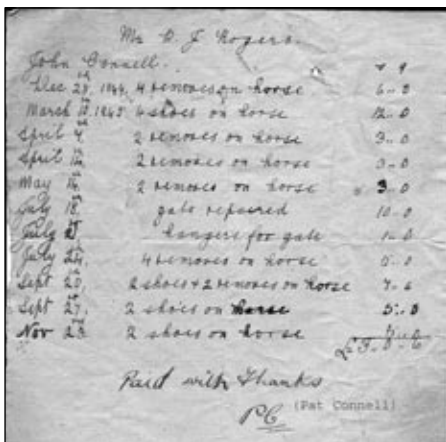 Mr D. J. Rogers.
John Connell.
Dec 28th 1944 4 removes on horse 6-0
March 10th 1945 4 shoes on horse 12-0
April 4th 2 removes on horse 3-0
April 12th 2 removes on horse 3-0
May 14th 2 removes on horse 3-0
July 18th gate repaired 10-0
July hangers for gate
July 24th 4 removes on horse
Sept 20th 2 shoes & 2 removes on horse
Sept 27th 2 shoes on horse 5-0
Nov 23 2 shoes on horse
£3
Paid with Thanks
PC (Pat Connell)